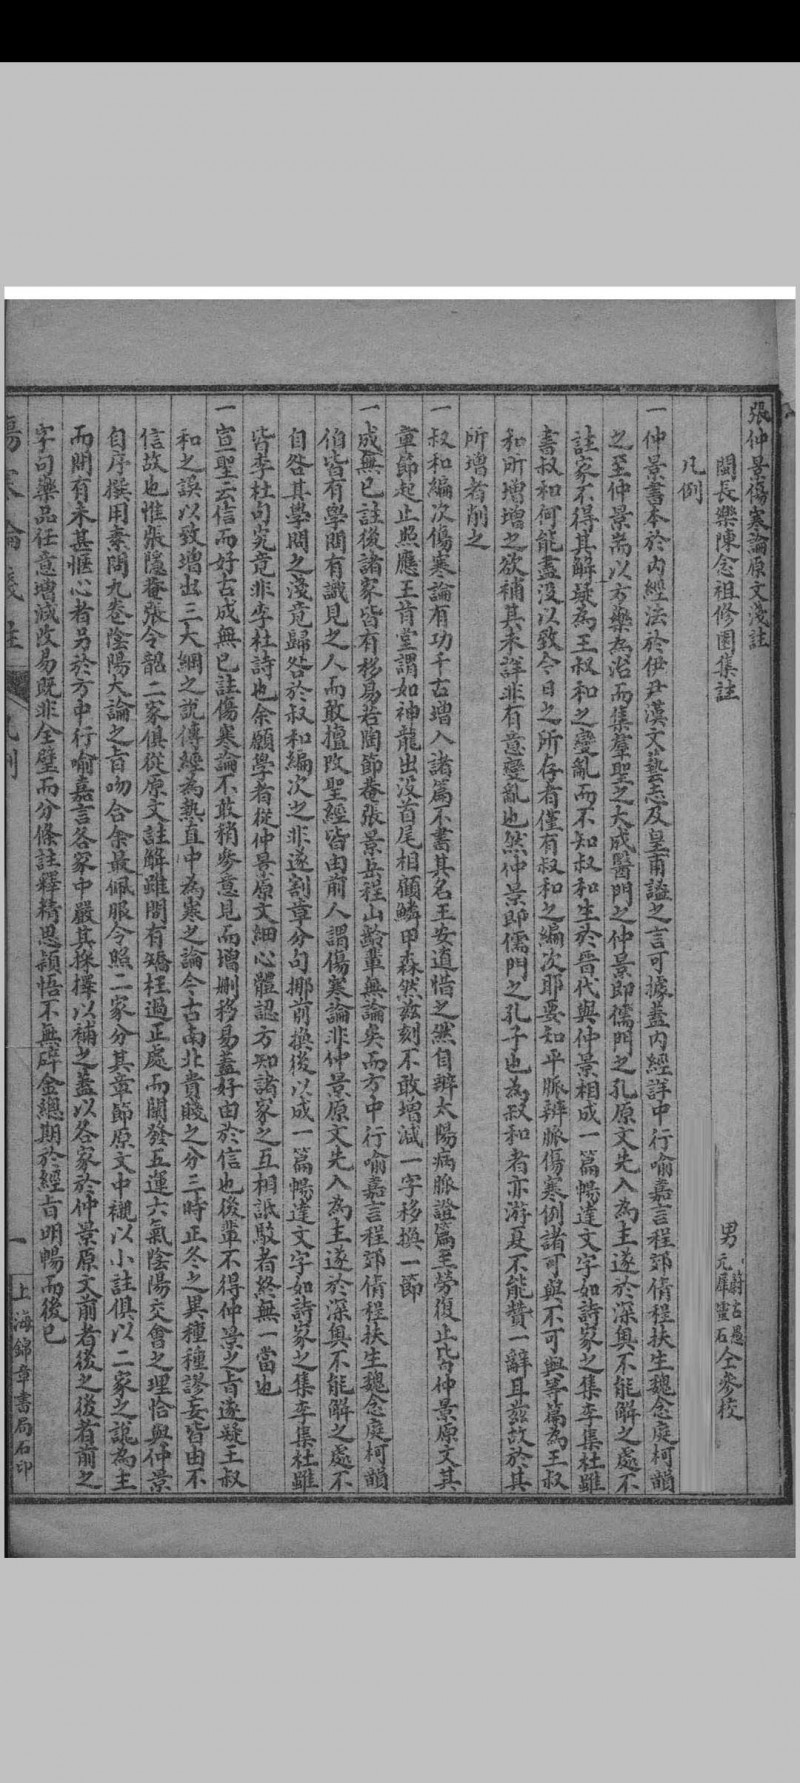 張仲景傷寒論原文淺註
閩長樂陳念祖修園集註
男
蔚古愚
元犀靈石
仝參校
凡例
一仲景書本於內經法於伊尹漢文藝志及皇甫謐之言可據蓋內經詳中行喻嘉言程郊倩程扶生魏念庭柯韻
之至仲景耑以方藥為治而集羣聖之大成醫門之仲景即儒門之孔原文先入為主遂於深奧不能解之處不
註家不得其解疑為王叔和之變亂而不知叔和生於晉代與仲景相成一篇暢達文字如詩家之集李集杜雖
書叔和何能盡沒以致今日之所存者僅有叔和之編次耶要知平脈辨脈傷寒例諸可與不可與等篇為王叔
和所增增之欲補其未詳非有意變亂也然仲景即儒門之孔子也為叔和者亦游夏不能贊一辭耳茲故於其
所增者削之
一叔和編次傷寒論有功千古增入諸篇不書其名王安道惜之然自辨太陽病脈證篇至勞復止皆仲景原文其
章節起止照應王肯堂謂如神龍出沒首尾相顧鱗甲森然茲刻不敢增減一字移換一節
一成無已註後諸家皆有移易若陶節菴張景岳程山齡輩無論矣而方中行喻嘉言程郊倩程扶生魏念庭柯韻
伯皆有學問有識見之人而敢擅改聖經皆由前人謂傷寒論非仲景原文先入為主遂於深奧不能解之處不
自咎其學問之淺竟歸咎於叔和編次之非遂割章分句挪前換後以成一篇暢達文字如詩家之集李集杜雖
皆李杜句究竟非李杜詩也余願學者從仲景原文細心體認方知諸家之互相詆駁者終無一當也
一宣聖云信而好古成無已註傷寒論不敢稍參意見而增刪移易蓋好由於信也後輩不得仲景之旨遂疑王叔
和之誤以致增出三大綱之說傳經為熱直中為寒之論今古南北貴賤之分三時正冬之異種種謬妄皆由不
信故也惟張隱菴張令韶二家俱從原文註解雖間有矯枉過正處而闡發五運六氣陰陽交會之理恰與仲景
自序撰用素問九卷陰陽大論之旨吻合余最佩服今照二家分其章節原文中襯以小註俱以二家之說為主
而間有未甚愜心者另於方中行喻嘉言各家中嚴其採擇以補之蓋以各家於仲景原文前者後之後者前之
字句藥品任意增減改易既非全璧而分條註釋精思穎悟不無碎金總期於經旨明暢而後已
傷寒論淺註
凡例
一
上海錦章書局石印